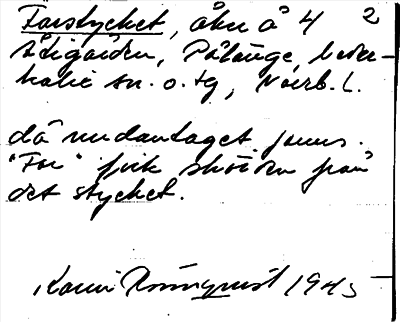 Farstycket, åker å 4 2
Stigården, Pålänge, Neder-
kalix sn. o. tg, Norrb. l.
då undantaget fanns.
"Far" fick skörden från
det stycket.
Karin Rönnqvist 1945